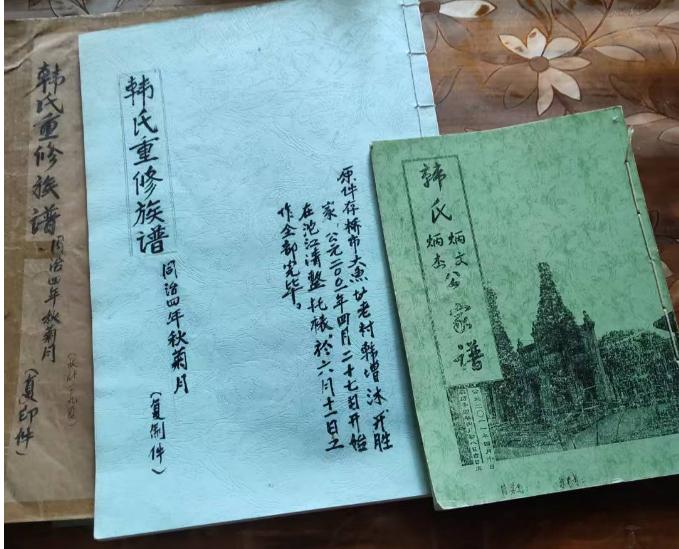 韩氏重修族谱
同治四年秋菊月
（复印件）
韩氏重修族谱
同治四年秋菊月
（复制件）
原件存桥市大鱼址老村韩增沐开胜
家，公元二〇〇一年四月二十七日开始
在池江清整托裱。于六月十一日工
作全部完毕。
韩氏炳文
炳杰公家谱